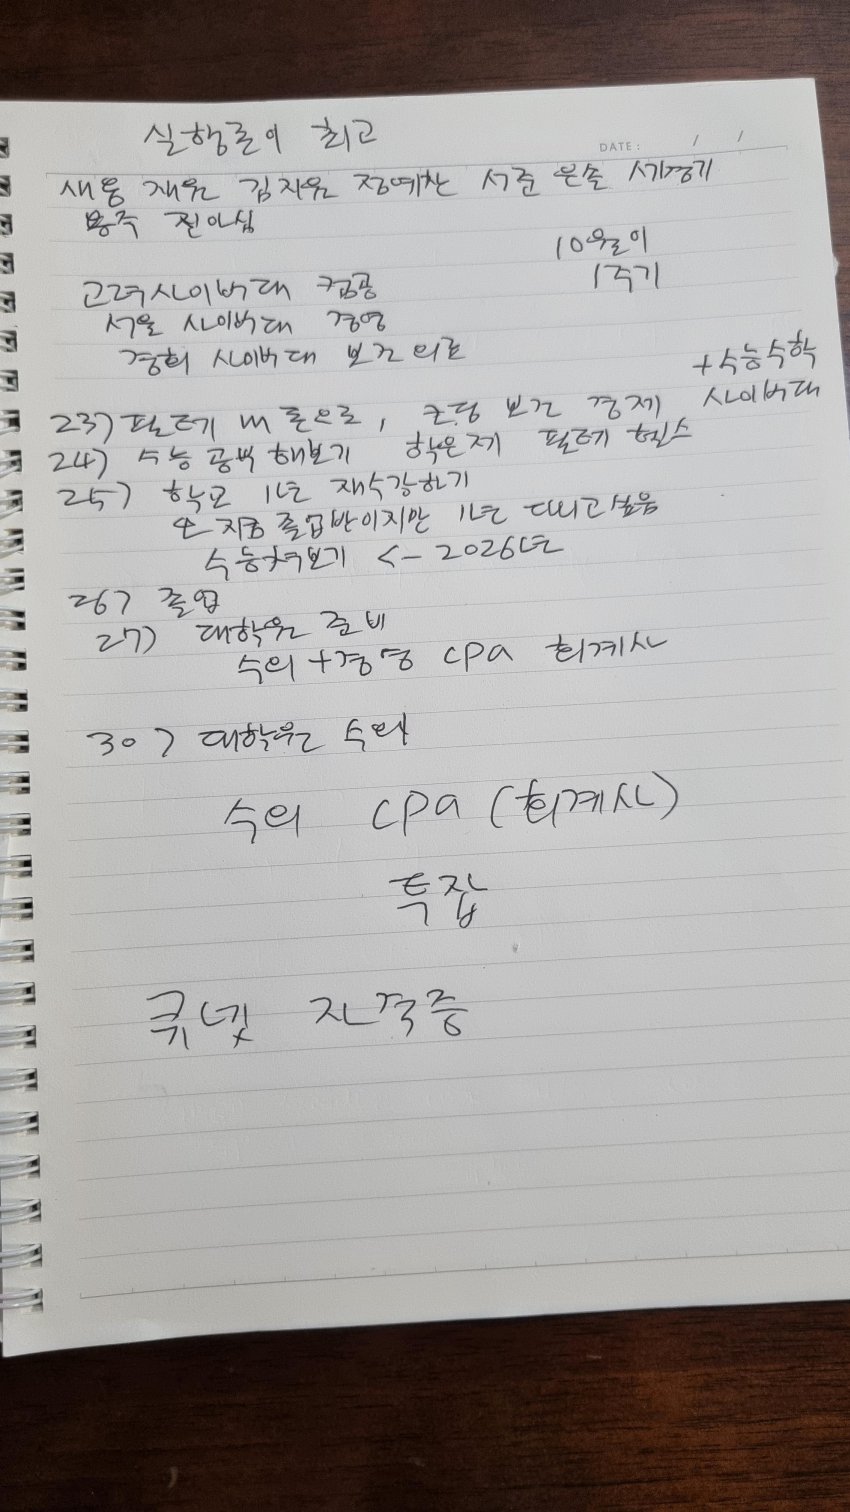 실행론이 최고
DATE : / /
새롬 재원 김지원 정예찬 서준 은솔
용주 진아심
10월이
1주기
고려사이버대 컴공
서울 사이버대 경영
경희 사이버대 보건의료
+수능수학
사이버대
23) 필라테 내 돈으로, 코딩 보건 경제
24) 수능 공부 해보기 학은제
25) 학교 1년 재수강하기
지금 졸업반이지만 1년 다니고싶음
수능쳐보기 <- 2026년
26) 졸업
27) 대학원 준비
수의+경영 cpa 회계사
30) 대학원 수의
수의 cpa (회계사)
특잡
큐넷 자격증